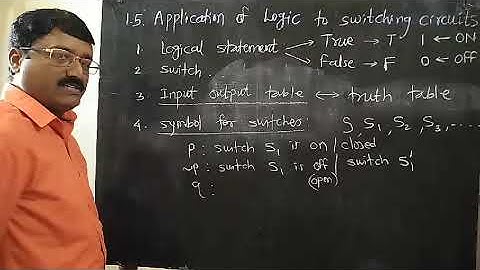 1.5. Application of Logic to switching circuits
1. Logical statement → True → T 1 ← ON
→ False → F 0 ← OFF
2. switch :
3. Input output table ↔ truth table
4. symbol for switches: S, S₁, S₂, S₃, ....
p : switch S₁ is on / closed
~p : switch S₁ is off / switch S₁'
(open)
q :